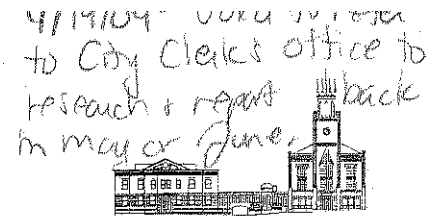 4/19/04 - to refer
to City Clerk's office to
research & report back
in may or June.